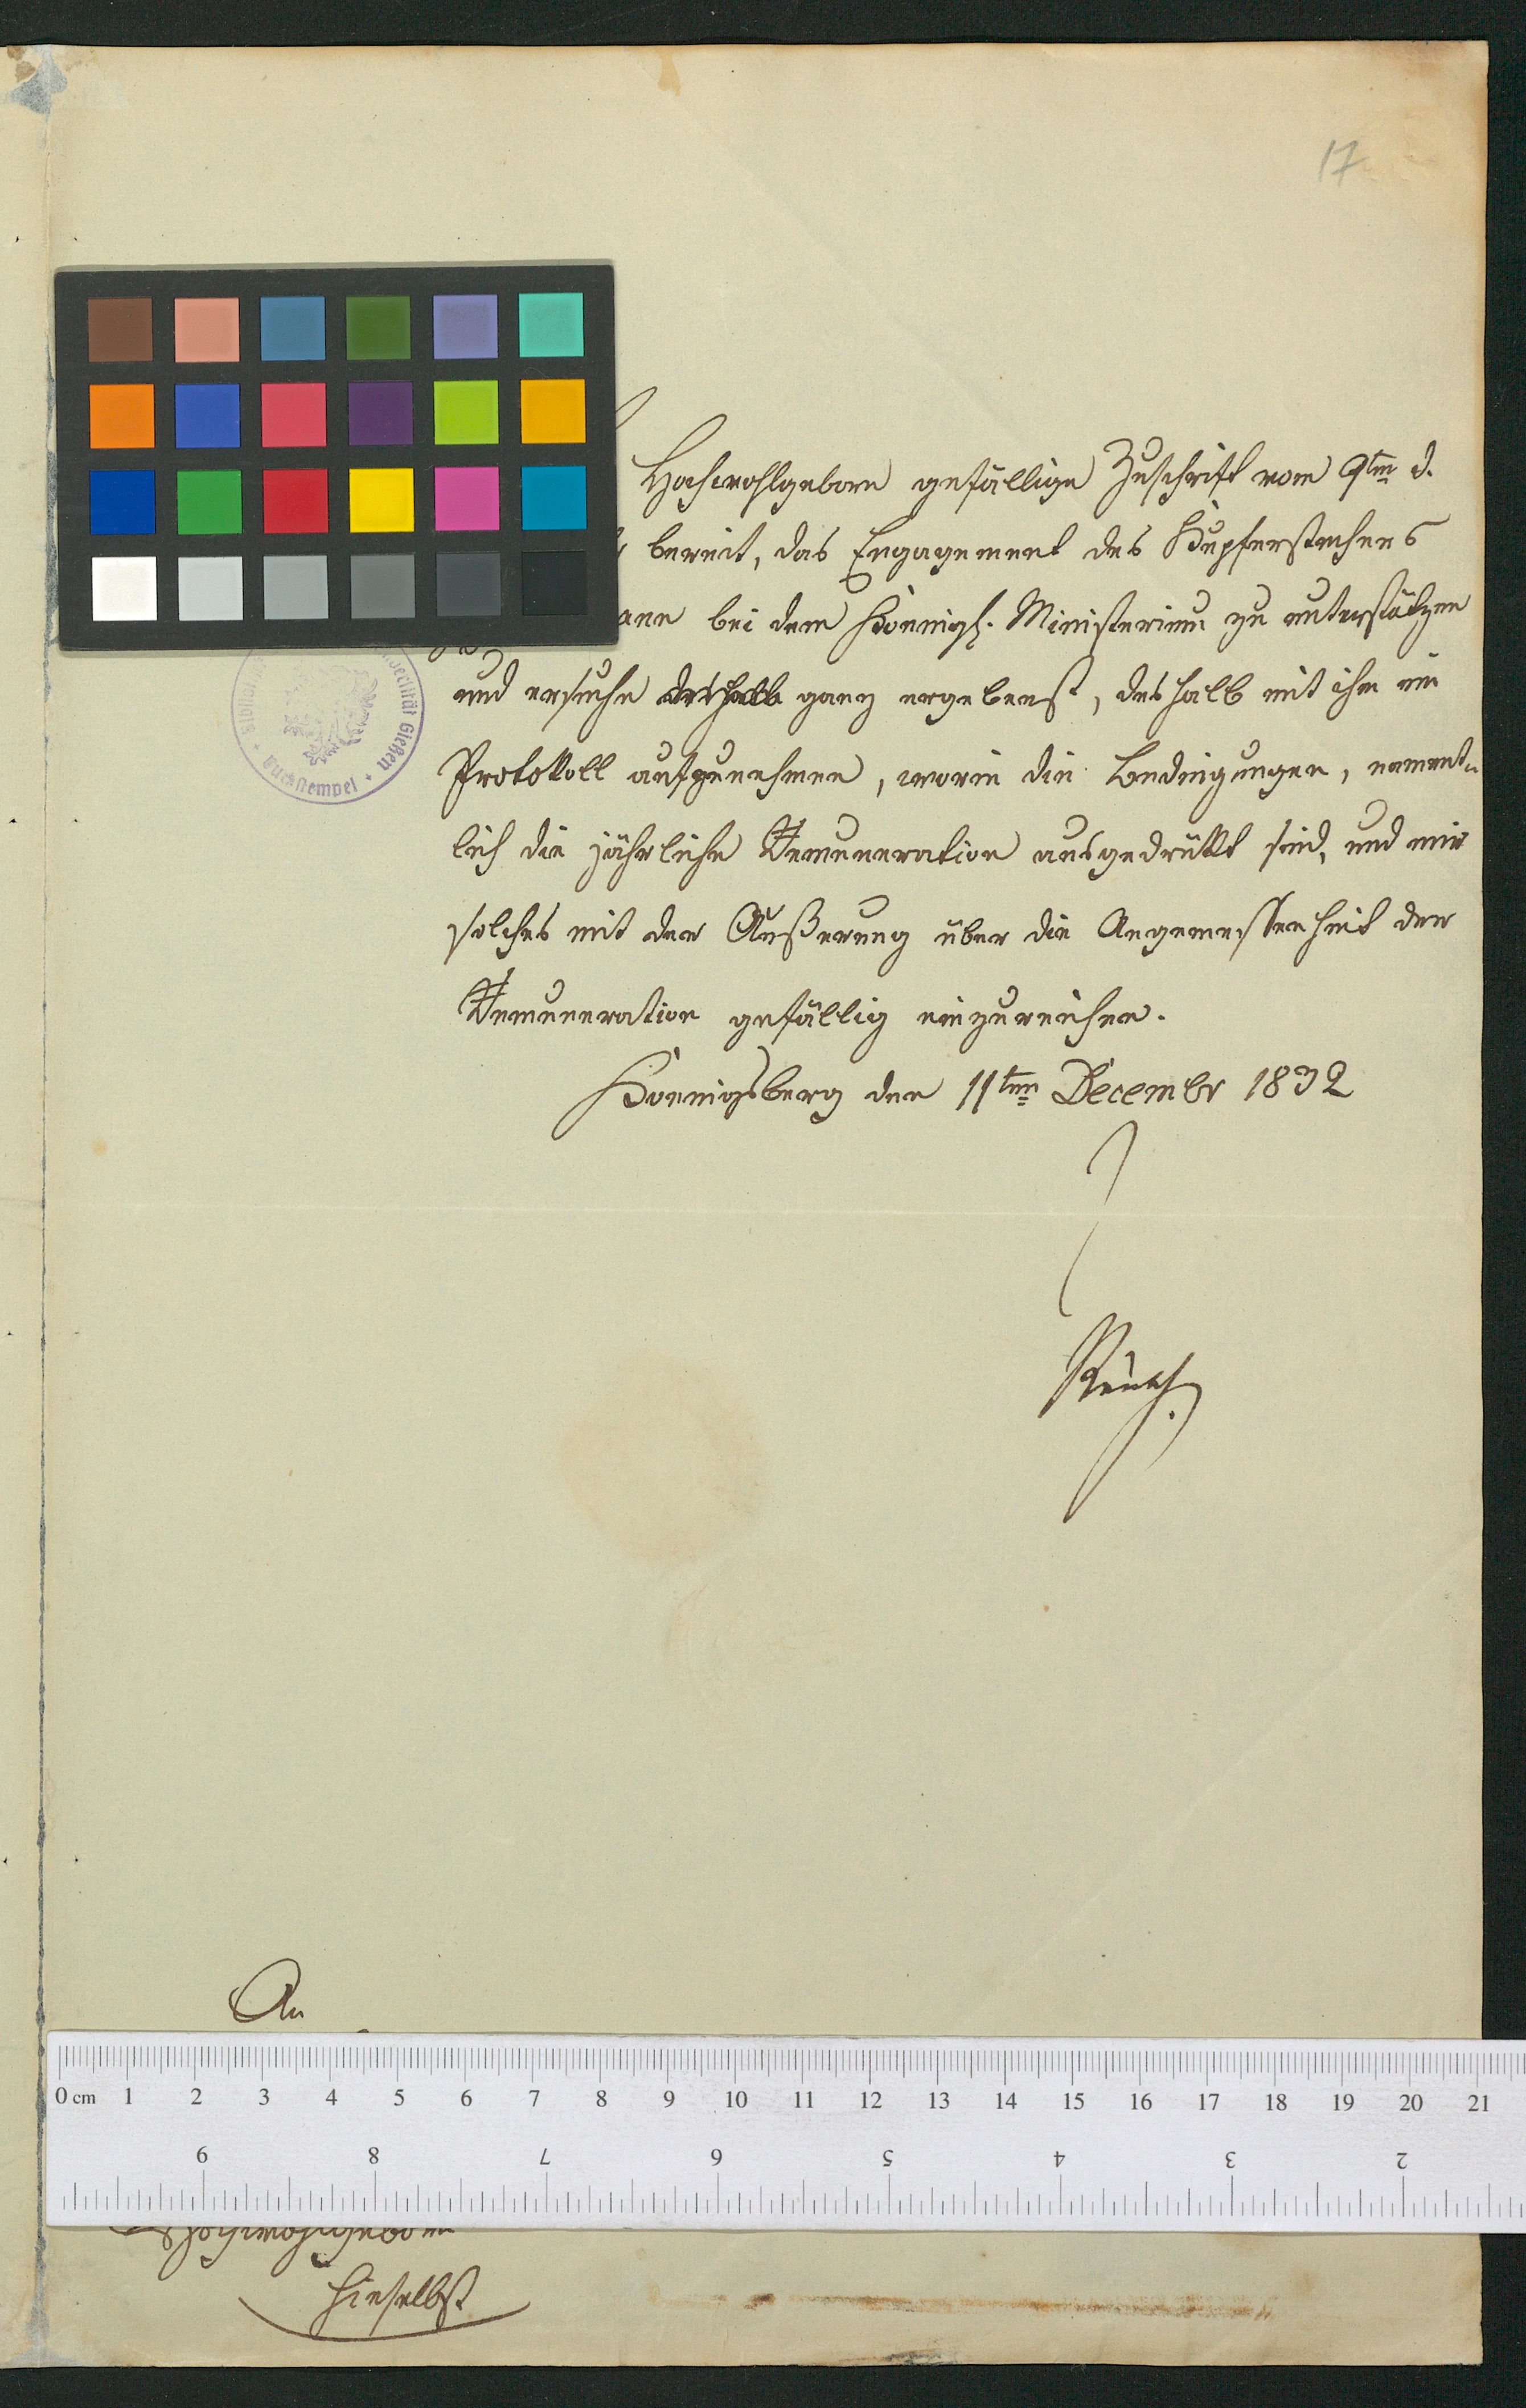 17
Hochwohlgeborn gefällige Zuschrift vom 9ten d.
bereit, das Engagement des Kupferstechers
ann bei dem Koenigl. Ministerium zu unterstützen
und ersuche deshalb ganz ergebenst, deshalb mit ihm ein
Protokoll aufzunehmen, worin die Bedingungen, nament-
lich die jährliche Remuneration ausgedrükt sind, und mir
solches mit der Äußerung über die Angemessenheit der
Remuneration gefällig einzureichen.
Koenigsberg den 11ten December 1832
An
0 cm 1 2 3 4 5 6 7 8 9 10 11 12 13 14 15 16 17 18 19 20 21
9 8 7 6 5 4 3 2
Hochwohlgeborn
hieselbst
Gießen
Buchstempel